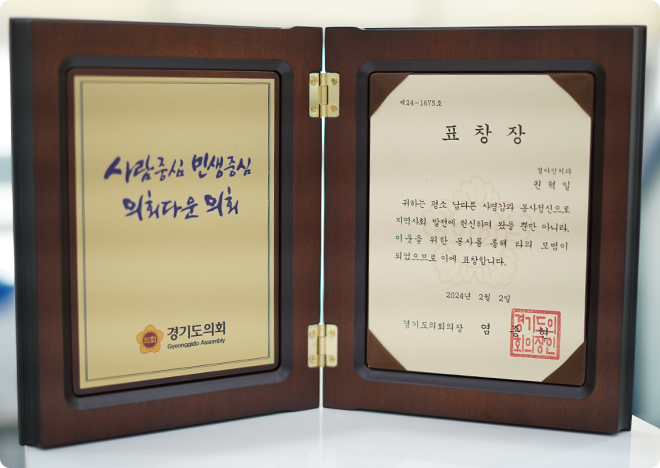 사람중심 민생중심
의회다운 의회
의회
경기도의회
Gyeonggido Assembly
제24-1675호
표창장
권혁일
귀하는 평소 남다른 사명감과 봉사정신으로
지역사회 발전에 헌신하여 왔을 뿐만 아니라,
이웃을 위한 봉사를 통해 타의 모범이
되었으므로 이에 표창합니다.
2024년 2월 2일
경기도의회의장 염종현
경기도의
회의장인